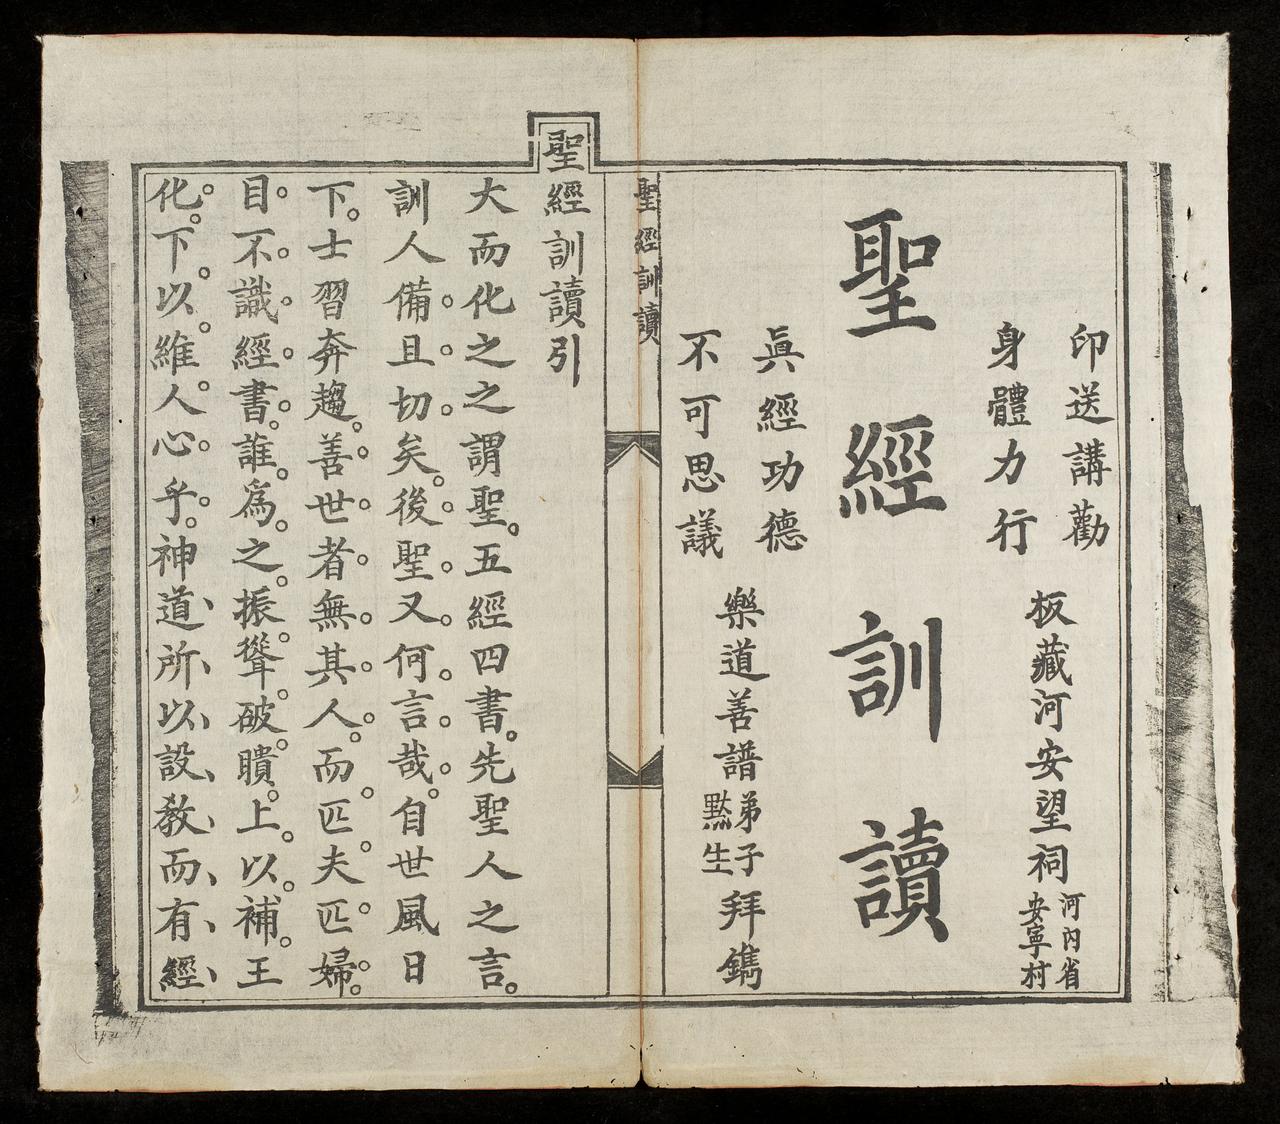 印送講勸
身體力行
板藏河安望祠
河內省
安寧村
聖經訓讀
眞經功德
不可思議
樂道善譜弟子黙生拜鐫
聖經訓讀
聖經訓讀引
大而化之之謂聖。五經四書。先聖人之言。
訓人備且切矣。後聖又何言哉。自世風日
下。士習奔趨。善世者無其人。而匹夫匹婦。
目不識經書。誰爲之振聾破聵。上以補王
化。下以維人心乎。神道所以設教而有經